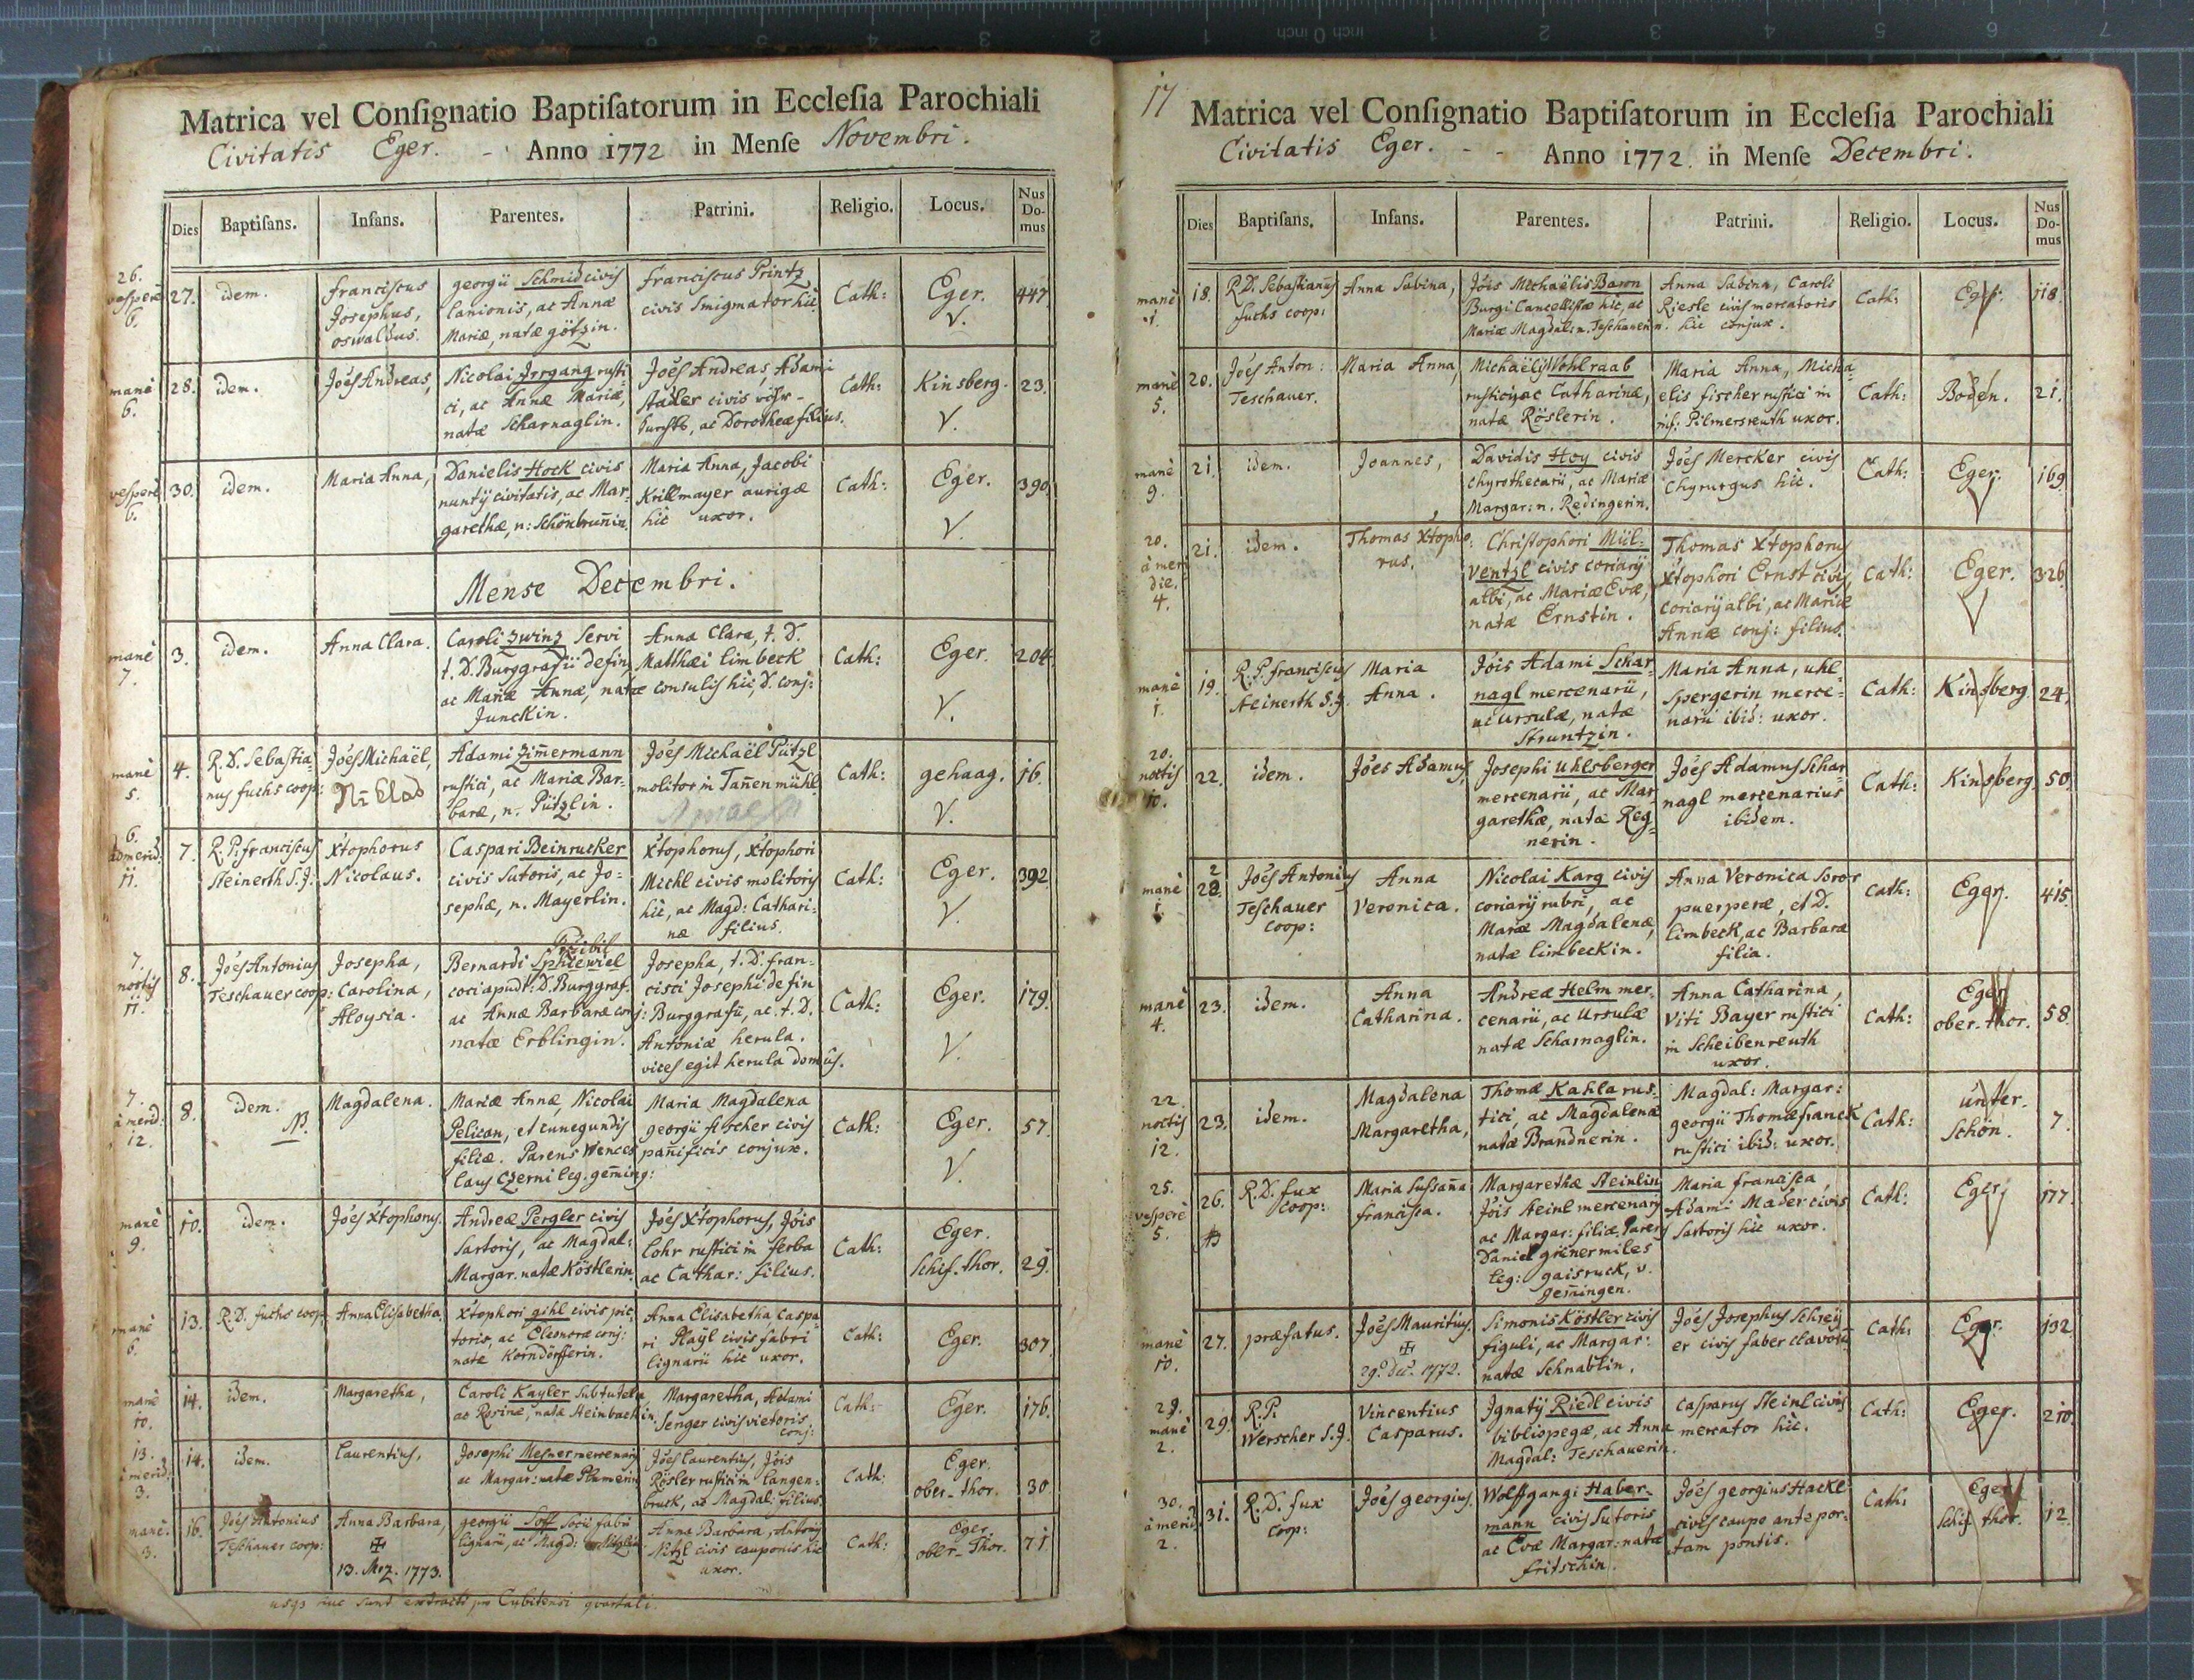 Matrica vel Conſignatio Baptiſatorum in Eccleſia Parochiali
Civitatis Eger. - Anno 1772 in Menſe Novembri.
Dies Baptiſans. Infans. Parentes. Patrini. Religio. Locus. Nus Domus
26. vesperè 6.
27. idem.
Franciscus
Josephus,
oswaldus.
georgii Schmid civis
lanionis, ac Annæ
Mariæ, natæ götzin.
Franciscus Printz
civis smigmator hic.
Cath:
Eger.
V.
447.
manè 6.
28. idem.
Joes Andreas,
Nicolai Irrgang rusti-
ci, ac Annæ Mariæ,
natæ Scharnaglin.
Joes Andreas, Adami
Stadler civis
ac Dorotheæ filius.
Cath:
Kinsberg.
V.
23.
vesperè 6.
30. idem.
Maria Anna,
Danielis Hock civis
nuntij civitatis, ac Mar-
garethæ, n: Schönbrunin.
Maria Anna, Jacobi
Krillmayer aurigæ
hic uxor.
Cath:
Eger.
V.
390.
Mense Decembri.
manè 7.
3. idem.
Anna Clara.
Caroli Zwinz servi
t. D. Burggrafii de fin,
ac Mariæ Annæ, natæ
Junckin.
Anna Clara, t. D.
Matthæi limbeck
consulis hic, D. conj:
Cath:
Eger.
V.
204.
manè 5.
4. R. D. Sebastia-
nus fuchs coop:
Joes Michaël,
Adami Zimermann
rustici, ac Mariæ Bar-
baræ, n. Pützlin.
Joes Michaël Pützl
molitor in Tañenmühl.
Cath:
gehaag.
V.
16.
6.
11.
7. R. P. franciscus
Steinerth S. J:
Xtophorus
Nicolaus.
Caspari Beinrucker
civis sutoris, ac Jo-
sephæ, n. Mayerlin.
Xtophorus, Xtophori
Michl civis molitoris
hic, ac Magd: Cathari-
næ filius.
Cath:
Eger.
V.
392.
7. noctis 11.
8. Joes Antonius
Teschauer coop:
Josepha,
Carolina,
Aloysia.
Bernardi
coci apud t. D. Burggraf.
ac Annæ Barbaræ conj:
natæ Erblingin.
Josepha, t. D. fran-
cisci Josephi de fin
Burggrafii, ac t. D.
Antoniæ herula.
vices egit herula domûs.
Cath:
Eger.
V.
179.
7. à merid: 12.
8. idem.
Magdalena.
Mariæ Annæ, Nicolai
Pelican, et cunegundis
filiæ. Parens Wences
laus Czerni leg. geming:
Maria Magdalena
georgii fischer civis
pañificis conjux.
Cath:
Eger.
V.
57.
manè 9.
10. idem.
Joes Xtophorus.
Andreæ Pergler civis
sartoris, ac Magdal:
Margar. natæ Köstlerin.
Joes Xtophorus, Jois
Lohr rustici in
ac Cathar: filius.
Cath:
Eger.
Schif-thor.
29.
manè 6.
13. R. D. fuchs coop.
Anna Elisabetha,
Xtophori gihl civis pic-
toris, ac Eleonoræ conj:
natæ Korndörfferin.
Anna Elisabetha Caspa-
ri Playl civis fabri
lignarii hic uxor.
Cath:
Eger.
307.
manè 10.
14. idem.
Margaretha,
Caroli Kayler
ac Rosinæ, natæ Steinbackin.
Margaretha, Adami
Senger civis vietoris
conj:
Cath:
Eger.
176.
13. à merid: 3.
14. idem.
Laurentius,
Josephi Mesner mercenarij
ac Margar: natæ Plumerin
Joes Laurentius, Jois
Rösler rustici in Langen-
bruck, ac Magdal: filius.
Cath:
Eger.
ober-thor.
30.
manè 3.
16. Joes Antonius
Teschauer coop:
Anna Barbara,
13. Mrz. 1773.
georgii Soff
lignarii, ac Magd:
Anna Barbara, Antonij
Nitzl civis cauponis hic
uxor.
Cath:
Eger.
ober-Thor.
71.
17
Matrica vel Conſignatio Baptiſatorum in Eccleſia Parochiali
Civitatis Eger. - - Anno 1772. in Menſe Decembri.
Dies Baptiſans. Infans. Parentes. Patrini. Religio. Locus. Nus Domus
manè 1.
18. R. D. Sebastianus
fuchs coop:
Anna Sabina,
Jois Michaëlis Baron
Burgi Cancellistæ hic, ac
Mariæ Magdal: n. Teschauerin.
Anna Sabina, Caroli
Riesle civis mercatoris
hic conjux.
Cath:
Eger.
118.
manè 5.
20. Joes Anton:
Teschauer.
Maria Anna,
Michaëlis Wohlraab
rustici, ac Catharinæ,
natæ Röslerin.
Maria Anna, Micha-
elis fischer rustici in
Pilmersreuth uxor.
Cath:
Boden.
21.
manè 9.
21. idem.
Joannes,
Davidis Hoy civis
chyrothecarii, ac Mariæ
Margar: n. Redingerin.
Joes Mercker civis
chyrurgus hic.
Cath:
Eger.
169.
20. à meri die. 4.
21. idem.
Thomas Xtopho-
rus.
Christophori Mül-
ventzl civis coriarij
albi, ac Mariæ Evæ,
natæ Ernstin.
Thomas Xtophorus
Xtophori Ernst civis
coriarij albi, ac Mariæ
Annæ conj: filius.
Cath:
Eger.
326.
manè 1.
19. R. P. franciscus
Steinerth S. J.
Maria
Anna.
Jois Adami Schar-
nagl mercenarii,
ac Ursulæ, natæ
Struntzin.
Maria Anna, uhl-
spergerin merce-
narii ibid: uxor.
Cath:
Kinsberg.
24.
20. noctis 10.
22. idem.
Joes Adamus,
Josephi Uhlsberger
mercenarii, ac Mar-
garethæ, natæ Reg-
nerin.
Joes Adamus Schar-
nagl mercenarius
ibidem.
Cath:
Kinsberg.
50.
manè 1.
22. Joes Antonius
Teschauer
coop:
Anna
Veronica.
Nicolai Karg civis
coriarij rubri, ac
Mariæ Magdalenæ,
natæ limbeckin.
Anna Veronica soror
puerperæ, et D.
limbeck, ac Barbaræ
filia.
Cath:
Eger.
415.
manè 4.
23. idem.
Anna
Catharina.
Andreæ Helm mer-
cenarii, ac Ursulæ
natæ Scharnaglin.
Anna Catharina,
Viti Bayer rustici
in Scheibenreuth
uxor.
Cath:
Eger
ober-thor.
58.
22. noctis 12.
23. idem.
Magdalena
Margaretha,
Thomæ Kahla rus-
tici, ac Magdalenæ
natæ Brandnerin.
Magdal: Margar:
georgii Thomæ franck
rustici ibid: uxor.
Cath:
unter-
Schön.
7.
25. vesperè 5.
26. R. D. fux
coop:
Maria Susaña
francisca.
Margarethæ Steinlin
Jois Steinl mercenarij
ac Margar: filiæ. Parens
Daniel griner miles
leg: gaisruck, v.
gemingen.
Maria francisca,
Adami Mader civis
sartoris hic uxor.
Cath:
Eger.
177.
manè 10.
27. præfatus.
Joes Mauritius.
29. Dec. 1772.
Simonis Köstler civis
figuli, ac Margar:
natæ Schnablin.
Joes Josephus Schrey-
er civis faber clavorum
Cath:
Eger.
132.
29. manè 2.
29. R. P.
Werscher S. J.
Vincentius
Casparus.
Ignatij Riedl civis
bibliopegæ, ac Anna
Magdal: Teschauerin.
Casparus Steinl civis
mercator hic.
Cath:
Eger.
210.
30. à merid: 2.
31. R. D. fux
coop:
Joes georgius.
Wolfgangi Haber-
mann civis sutoris
ac Evæ Margar: natæ
fritschin.
Joes georgius Hackl
civis caupo ante por-
tam pontis.
Cath:
Eger
Schif thor.
12.